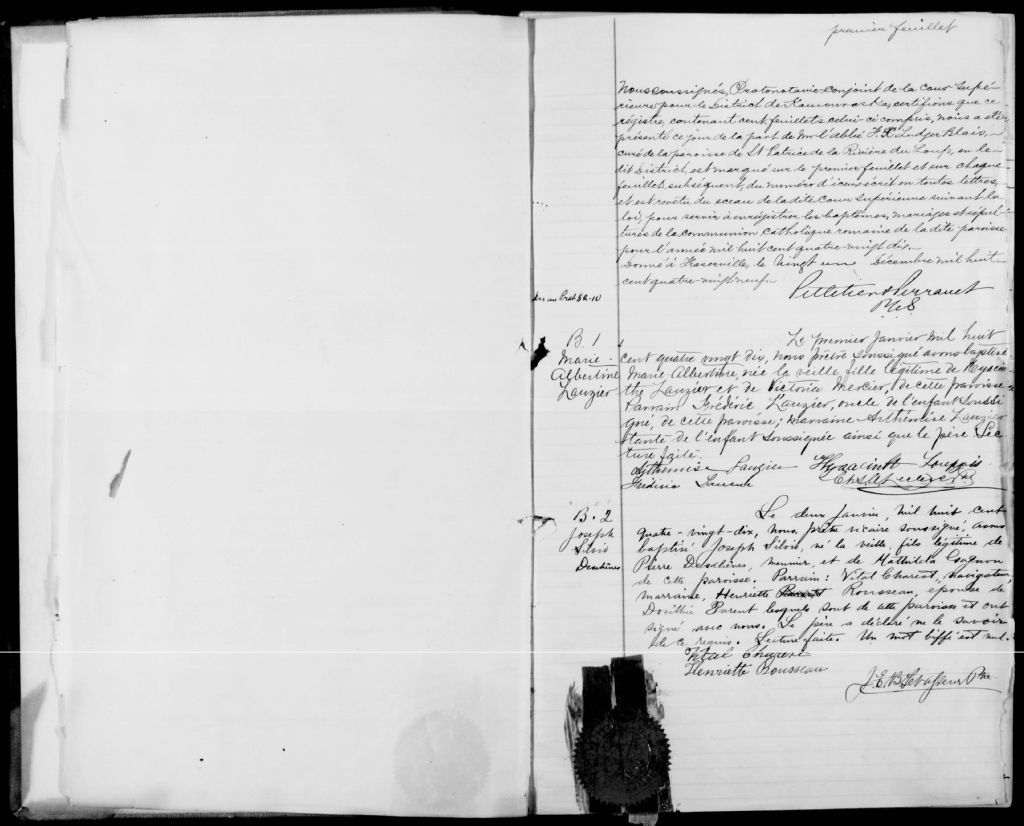 premier feuillet
Nous soussignés, Protonotaire conjoint de la Cour Supé-
rieure pour le District de Kamouraska, certifions que ce
régistre, contenant cent feuillets celui-ci compris, nous a été
présenté ce jour de la part de Mr l'abbé F. X. Ludger Blais,
curé de la paroisse de St Patrice de la Rivière du Loup, en le
dit District, est marqué sur le premier feuillet et sur chaque
feuillet subséquent, du numéro d'iceux écrit en toutes lettres,
et est revêtu du sceau de la dite Cour Supérieure suivant la
loi, pour servir à enrégistrer les baptêmes, mariages et sépul-
tures de la communion Catholique romaine de la dite paroisse
pour l'année mil huit cent quatre-vingt dix,
Donné à Fraserville, le vingt un Décembre mil huit
cent quatre-vingt neuf.
Pelletier & Perrault
PCS
B. 1
Marie-
Albertine
Lauzier
Le premier Janvier mil huit
cent quatre vingt dix, nous prêtre soussigné avons baptisé
Marie Albertine, née la veille, fille légitime de Hyacin-
the Lauzier et de Victoria Mercier, de cette paroisse
Parrain Frédéric Lauzier, oncle de l'enfant soussi
gné, de cette paroisse; marraine Arthémise Lauzier
tante de l'enfant soussignée ainsi que le père Lec
ture faite.
Arthemise Lauzier Hyacinth
Frédéric
B. 2
Joseph
Silvio
Deschênes
Le deux Janvier, mil huit cent
quatre-vingt-dix, nous, prêtre vicaire soussigné, avons
baptisé Joseph Silvio, né la veille, fils légitime de
Pierre Deschênes, meunier, et de Mathilda Gagnon
de cette paroisse. Parrain: Vital Charest, navigateur,
marraine, Henriette Rousseau, épouse de
Dosithé Parent lesquels sont de cette paroisse et ont
signé avec nous. Le père a déclaré ne le savoir
de ce requis. Lecture faite. Un mot biffé est nul.
Vital Charest
Henriette Rousseau
J. E. B. Levasseur Ptre